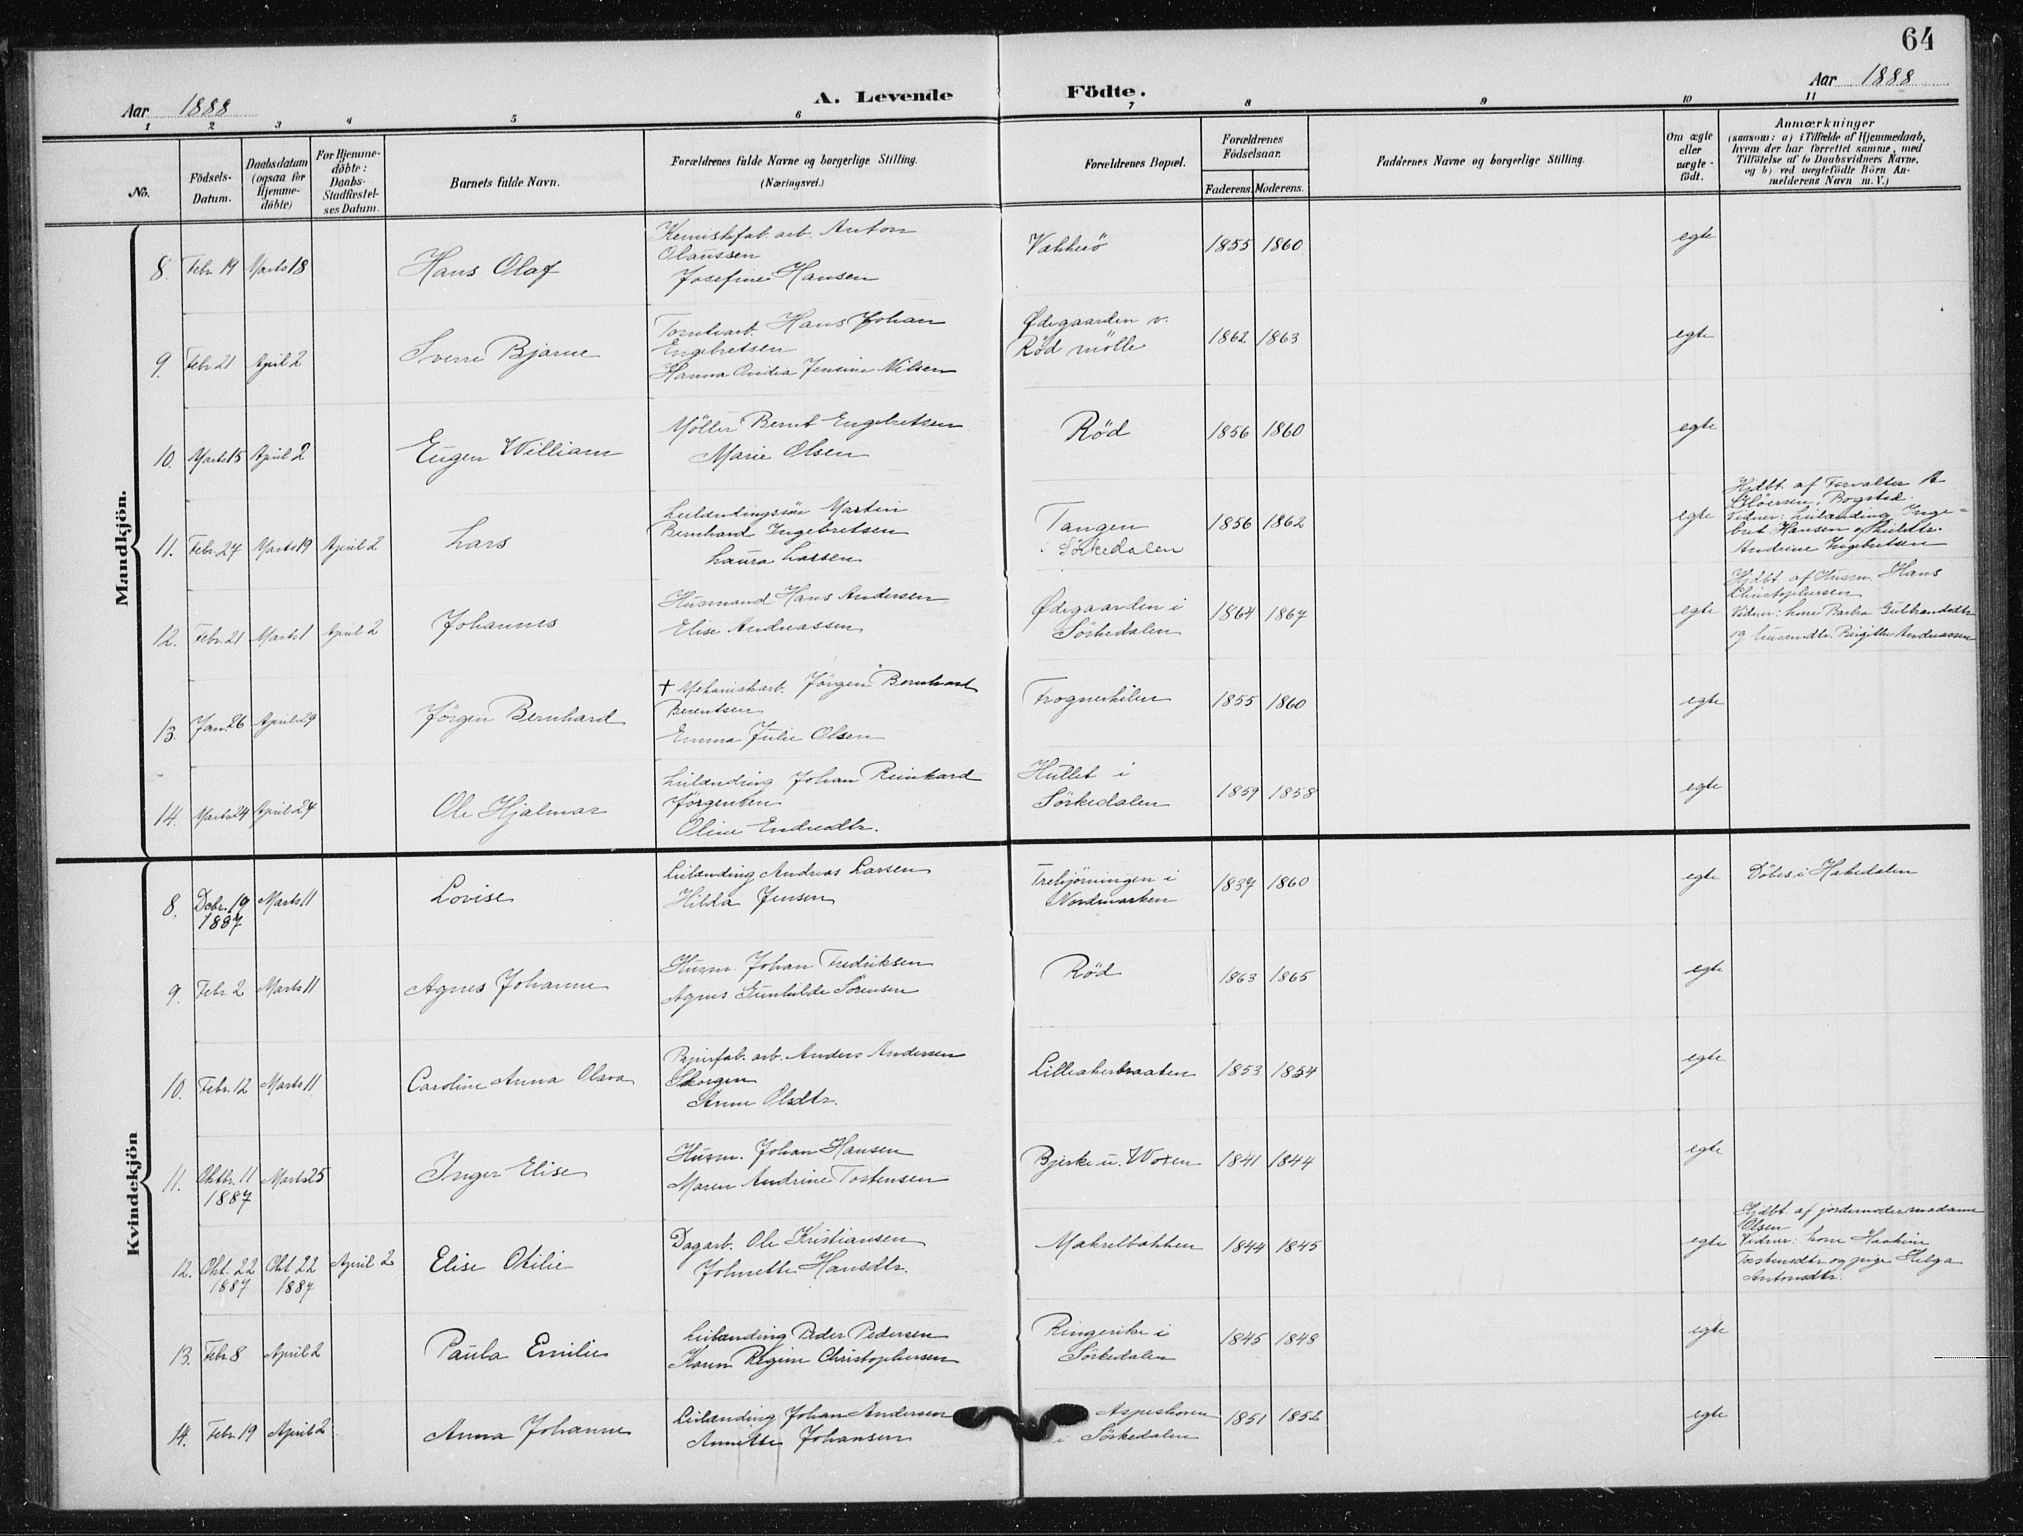 64
Aar 1888
A. Levende Födte.
Aar 1888
1 2 3 4 5 6 7 8 9 10 11
No.
Födsels-
Datum.
Daabsdatum
(ogsaa for
Hjemme-
döbte)
For Hjemme-
döbte:
Daabs-
Stadfæstel-
ses Datum.
Barnets fulde Navn.
Forældrenes fulde Navne og borgerlige Stilling.
(Næringsvei.)
Forældrenes Bopæl.
Forældrenes
Födselsaar.
Faderens. Moderens.
Faddernes Navne og borgerlige Stilling.
Om ægte
eller
uægte-
födt.
Anmærkninger
(saasom: a) i Tilfælde af Hjemmedaab,
hvem der har forrettet samme, med
Tilföielse af to Daabsvidners Navne,
og b) ved uægtefödte Börn An-
melderens Navn m. V.)
Mandkjön.
8. Febr. 14 Marts 18 Hans Olaf
Kemiskfab. arb. Anton
Olaussen
Josefine Hansen
Vækkerö 1855 1860 egte
9. Febr. 21 April 2 Sverre Bjarne
Tomtearb. Hans Johan
Engebretsen
Hanna Ovidia Jensine Nilsen
Ødegaarden v.
Rød mølle 1862 1863 egte
10. Marts 15 April 2 Eugen William
Møller Bernt Engebretsen
Marie Olsen
Rød 1856 1860 egte
11. Febr. 27 Marts 19 April 2 Lars
Leilændingssön Martin
Bernhard Ingebretsen
Laura Larsen
Tangen
i Sörkedalen 1856 1862 egte
Hjdbt. af Forvalter A
Bogstad.
Vidner: Leilænding Inge-
bret Hansen og
Andrine Ingebretsen
12. Febr. 21 Marts 1 April 2 Johannes
Husmand Hans Andersen
Elise Andreassen
Ødegaarden i
Sörkedalen 1864 1867 egte
Hjdbt. af Husm. Hans
Christophersen
Vidner: kone Barbra Gulbrandsdtr
og husmdtr. Birgitte Andreassen
13. Jan. 26 April 29 Jörgen Bernhard
† Mekaniskarb. Jörgen Bernhard
Berentsen
Emma Julie Olsen
Frognerkilen 1855 1860 egte
14. Marts 24 April 24 Ole Hjalmar
Leilænding Johan Reinhard
Jörgensen
Oline Endresdtr.
Hullet i
Sörkedalen 1859 1858 egte
Kvindekjön
8. Decbr. 19
1887 Marts 11 Lovise
Leilænding Andreas Larsen
Hilda Jensen
Trehjörningen i
Nordmarken 1837 1860 egte Döbt i Hakedalen
9. Febr. 2 Marts 11 Agnes Johanne
Husm. Johan Fredriksen
Agnes Gunhilde Sörensen
Rød 1863 1865 egte
10. Febr. 12 Marts 11 Caroline Anna Olava
Papirfab. arb. Anders Andersen
Skorgen
Anne Olsdtr.
Lilleakerbraaten 1853 1854 egte
11. Oktbr. 11
1887 Marts 25 Inger Elise
Husm. Johan Hansen
Maren Andrine Tostensen
Bjerke u. Woxen 1841 1844 egte
12. Okt. 22
1887 Okt 22
1887 April 2 Elise Otilie
Dagarb. Ole Kristiansen
Johnette Hansdtr.
Makrelbakken 1844 1845 egte
Hjdbt. af jordemoder madame
Olsen
Vidner: kone Haakine
Tostensdtr og pige Helga
Antonsdtr.
13. Febr. 8 April 2 Paula Emilie
Leilænding Peder Pedersen
Karen Regine Christophersen
Ringerike i
Sörkedalen 1845 1848 egte
14. Febr. 19 April 2 Anna Johanne
Leilænding Johan Andersen
Annette Johansen
Aspeskoven
i Sörkedalen 1851 1852 egte